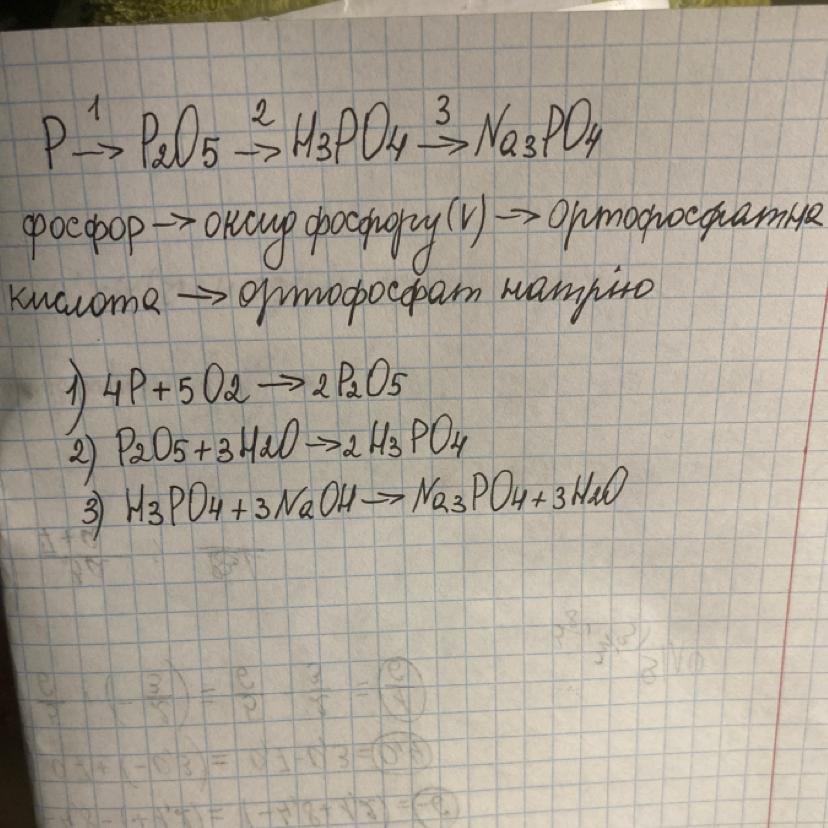 P →¹ P₂O₅ →² H₃PO₄ →³ Na₃PO₄
фосфор → оксид фосфору (V) → ортофосфатна
кислота → ортофосфат натрію
1) 4P + 5O₂ → 2P₂O₅
2) P₂O₅ + 3H₂O → 2H₃PO₄
3) H₃PO₄ + 3NaOH → Na₃PO₄ + 3H₂O